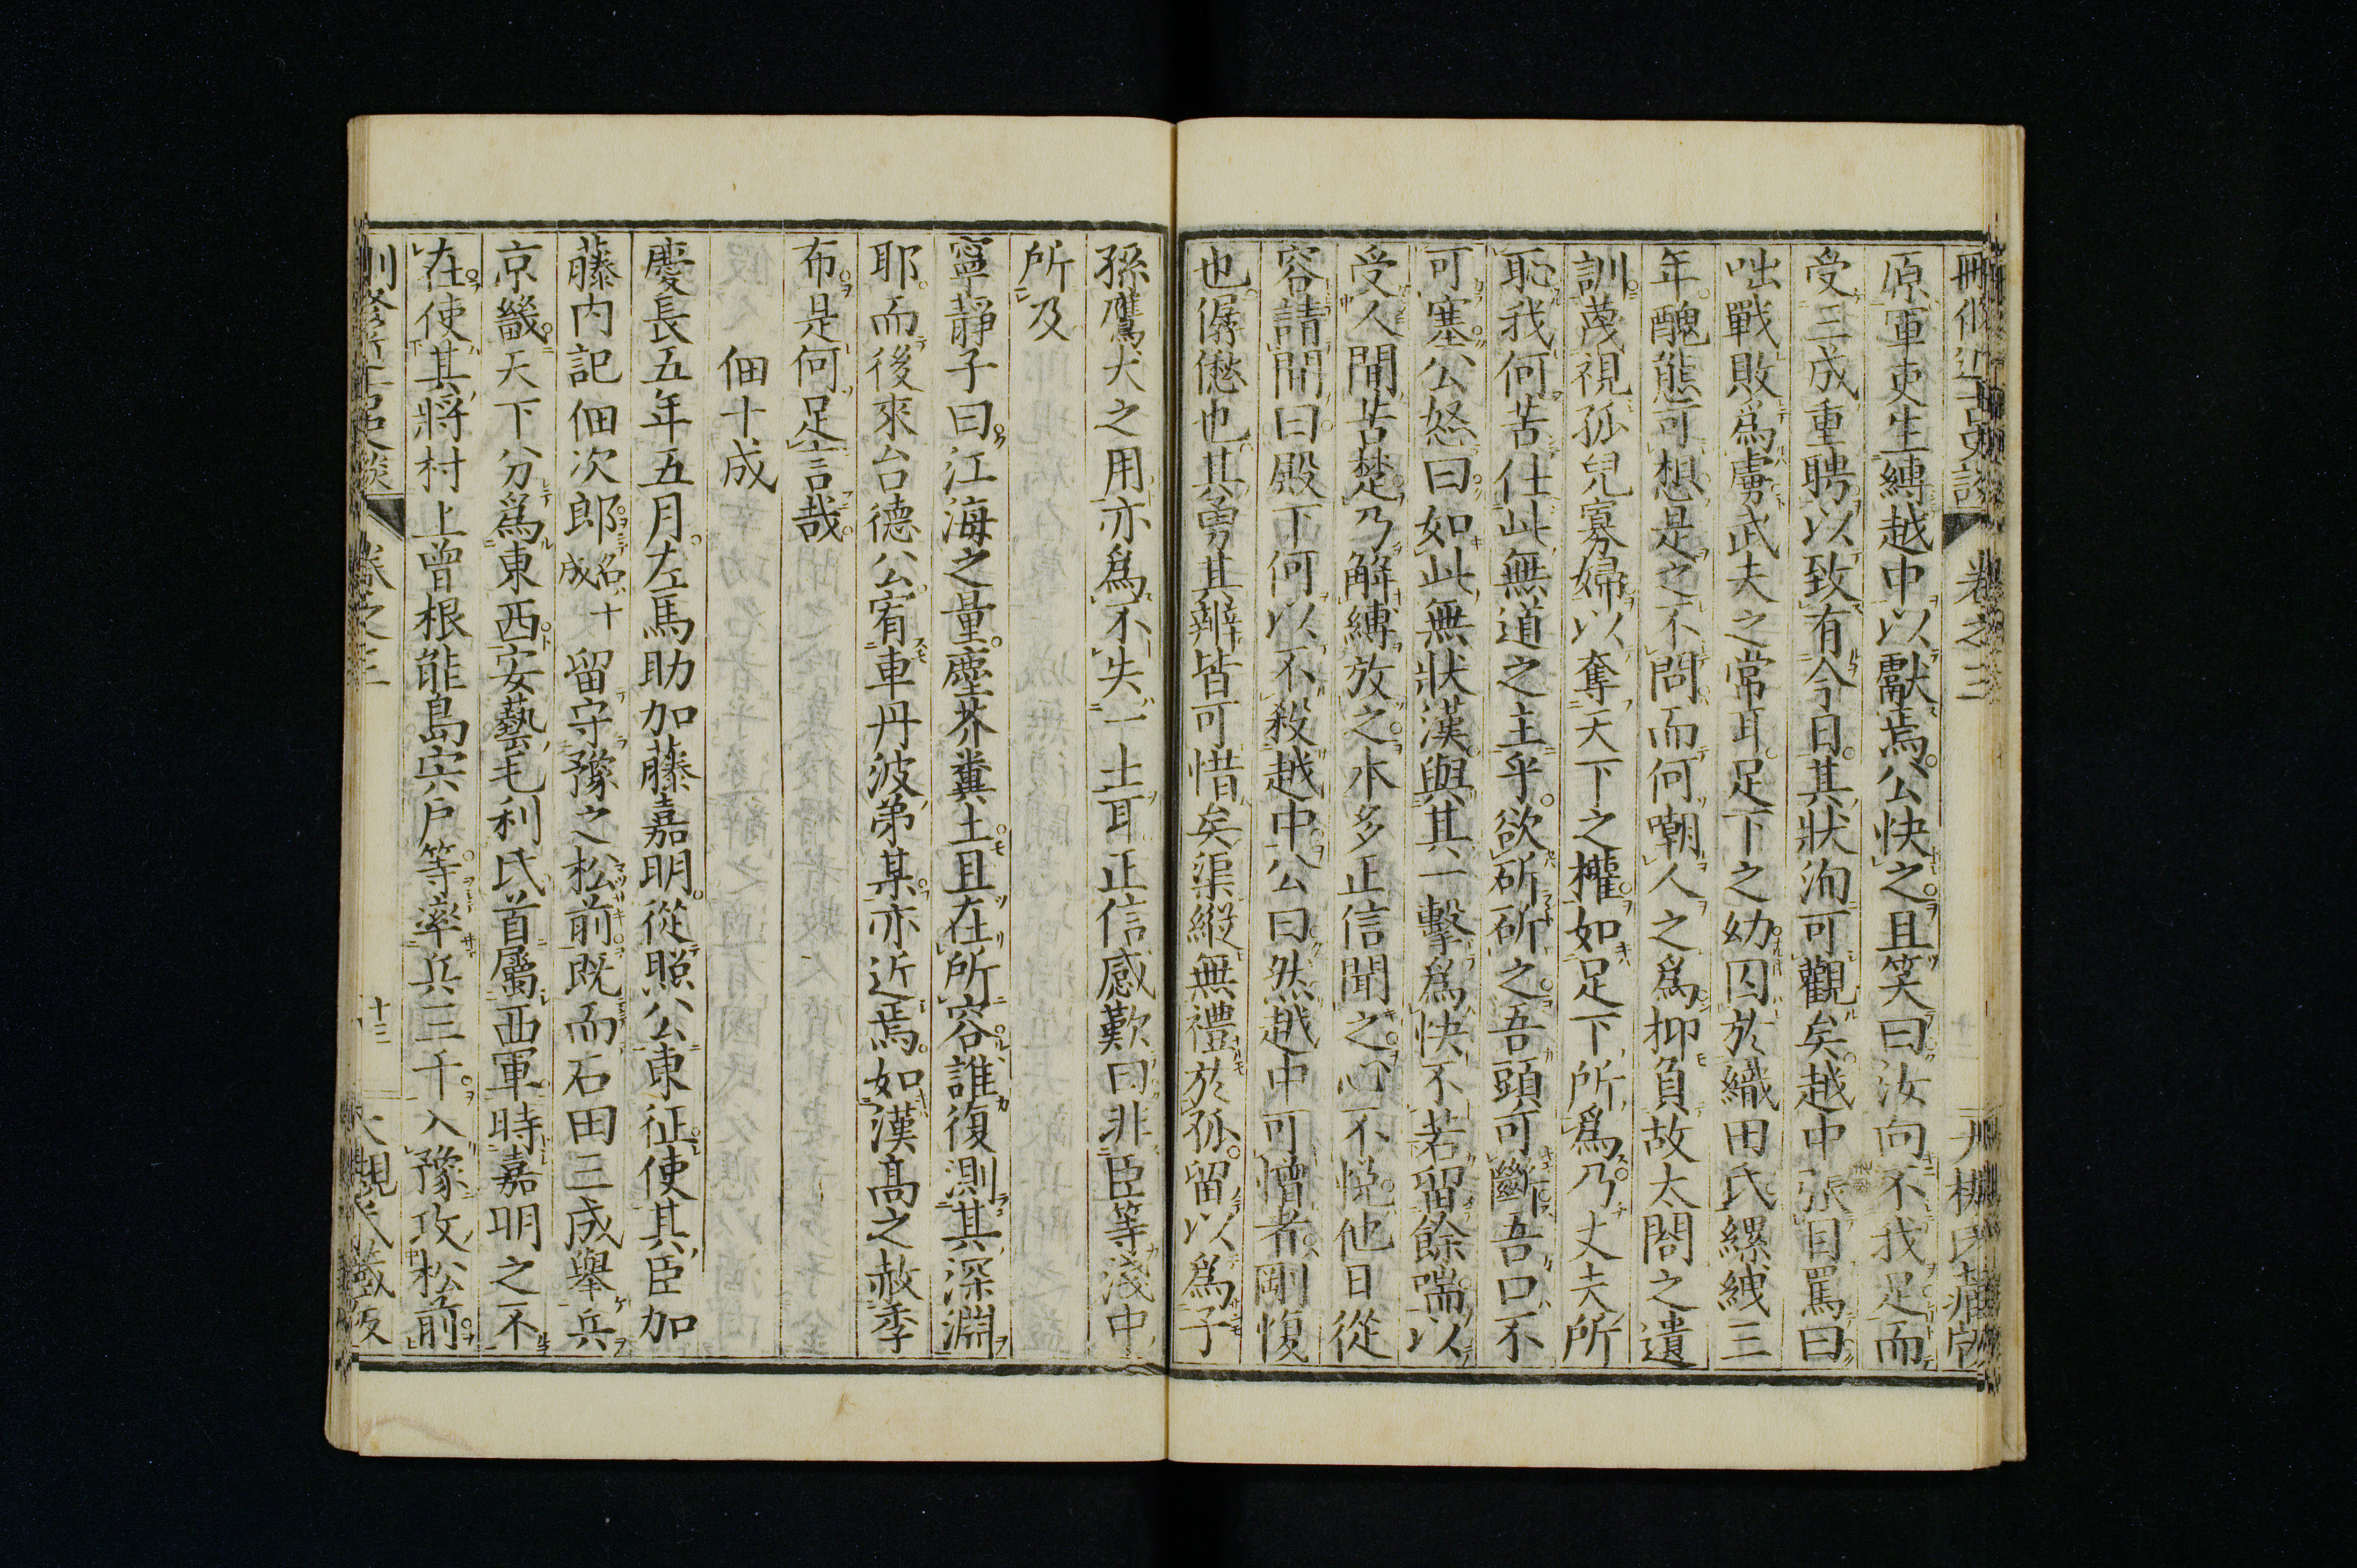 刪修近古史談 卷之三
原軍吏生縛越中以獻焉公快之且笑曰汝向不我足而
受三成重聘以致有今日其狀洵可觀矣越中張目罵曰
咄戰敗爲虜武夫之常耳足下之幼囚於織田氏縲絏三
年醜態可想是之不問而何嘲人之爲抑負故太閤之遺
訓蔑視孤兒寡婦以奪天下之權如足下所爲乃丈夫所
恥我何苦仕此無道之主乎欲斫斫之吾頭可斷吾口不
可塞公怒曰如此無狀漢與其一擊爲快不若留餘喘以
受人間苦楚乃解縛放之本多正信聞之心不悅他日從
容請間曰殿下何以不殺越中公曰然越中可憎者剛愎
也孱懲也其勇其辯皆可惜矣渠縱無禮於孤留以爲子
孫鷹犬之用亦爲不失一士耳正信感歎曰非臣等淺中
所及
寧靜子曰江海之量塵芥糞土且在所容誰復測其深淵
耶而後來台德公宥車丹波弟某亦近焉如漢高之赦季
布是何足言哉
佃十成
慶長五年五月左馬助加藤嘉明從照公東征使其臣加
藤内記佃次郎名十成留守豫之松前既而石田三成擧兵
京畿天下分爲東西安藝毛利氏首屬西軍時嘉明之不
在使其將村上曾根能島宍戶等率兵三千入豫攻松前
卷之三 十三 大槻氏藏版